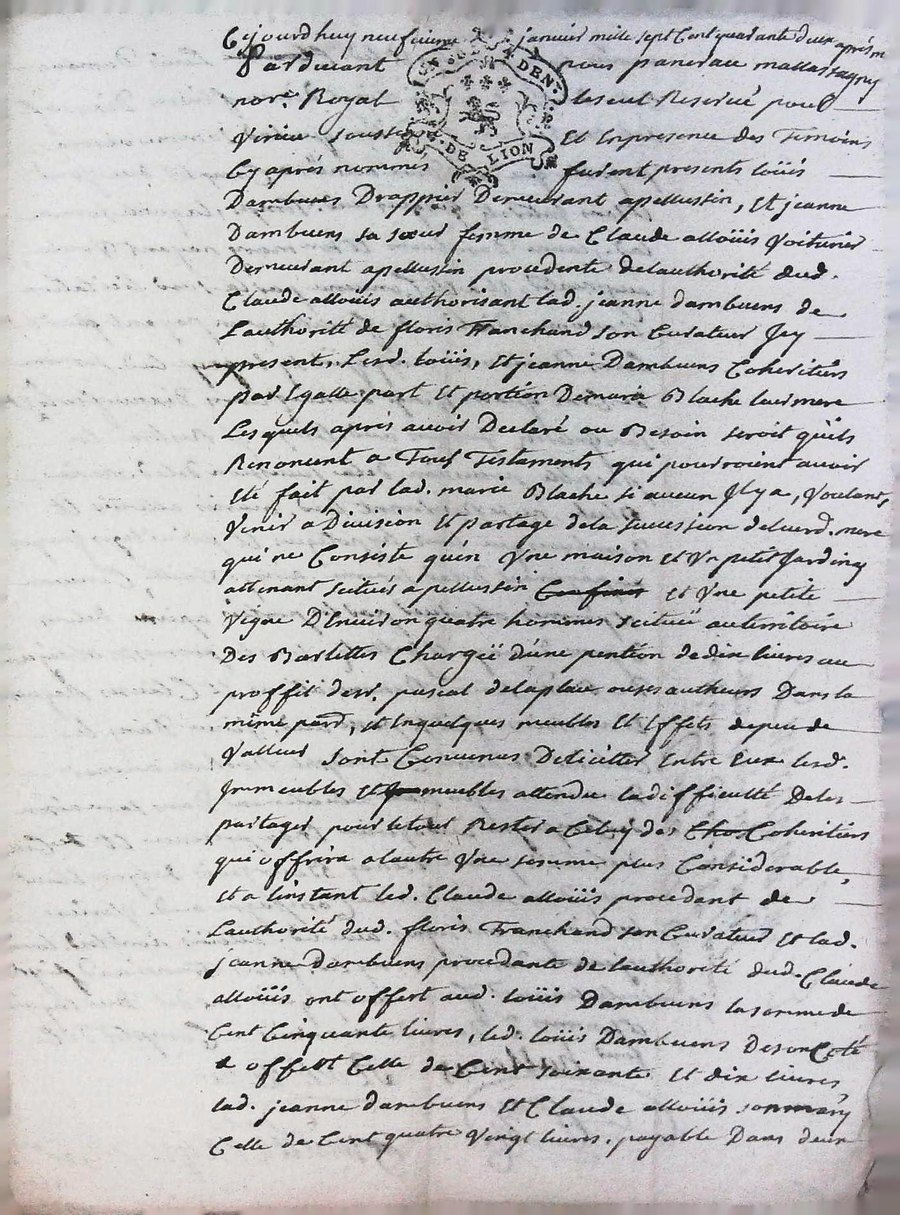 Cejourdhuy neufvieme de janvier mille sept Cent quarante deux après m
Pardevant nous pancrace mallassagny
nore. Royal
DEN.
DE LION
les eul Reservé pour
Virieu soussigné Et En presence des Temoins
Cy après nommés furent presents loüis
Dambuens Drappier Demeurant apellussin, Et jeanne
Dambuens sa sœur femme de Claude alloüis Voiturier
Demeurant apellussin procedente delauthorité dud.
Claude alloüis authorisant lad. jeanne dambuens de
Lauthorité de floris Franchand son Curateur Jcy
present, Lesd. loüis, Et jeanne Dambuens Coheritiers
par Egalle part Et portion De marie Blache leur mere
Lesquels après avoir Declaré ou Besoin seroit quils
Renoncent a Tous Testaments qui pourroient avoir
Eté fait par lad. marie Blache si aucun Jl y a, Voulant,
Venir a Division Et partage dela succession deleurd. mere
qui ne Consiste quén Vne maison et Vn petit Jardin y
attenant scitués apellussin Confine et Vne petite
Vigne D'Environ quatre hommes scituëe au territoire
Des Barlettes Chargëe d'une pention de dix livres au
proffit de sr. pascal delaplace ou ses autheurs Dans la
même part, et En quelques meubles Et Effets de peu de
Valleur sont Convenus De liciter Entre Eux lesd.
Jmmeubles Et meubles attendu la difficulté De les
partager pour le tout Rester a Celuy des Coheritiers
qui offrira a lautre Vne somme plus Considerable,
Et a linstant led. Claude alloüis procedant de
Lauthorité dud. floris Franchand son Curateur Et lad.
jeanne Dambuens procedante de lauthorité dud. Claude
alloüis ont offert aud. loüis Dambuens la somme de
Cent Cinquante livres, led. loüis Dambuens De son Coté
a offert Celle de Cent soixante Et dix livres
lad. jeanne dambuens Et Claude alloüis son mary
Celle de Cent quatre Vingt livres. payable Dans deux